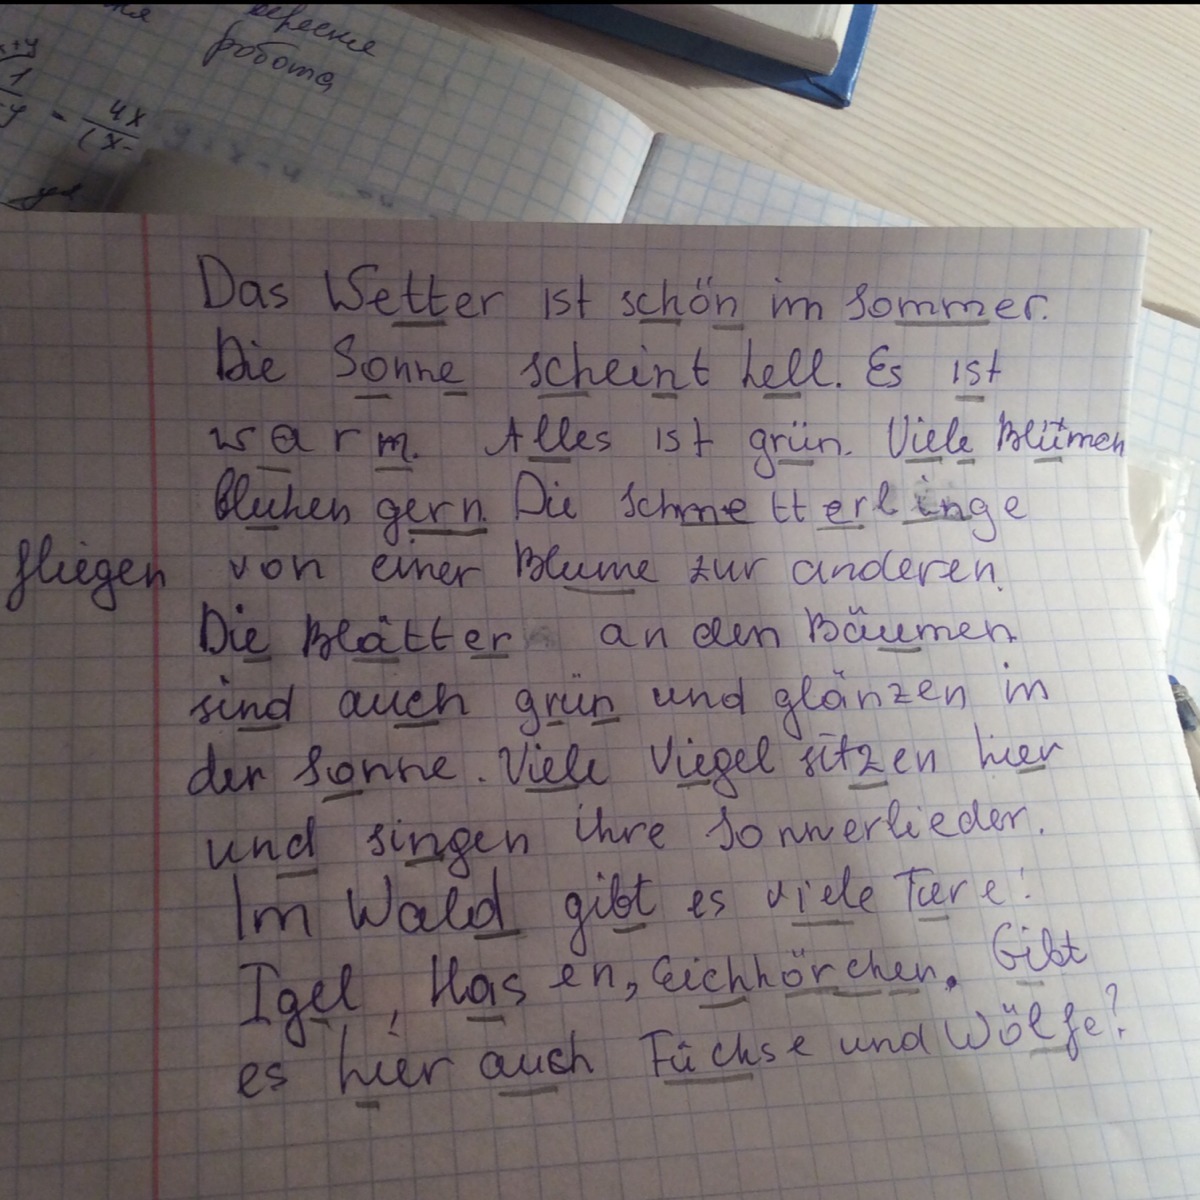 вересня
робота
4x
Das Wetter ist schön im Sommer.
Die Sonne scheint hell. Es ist
warm. Alles ist grün. Viele Blümen
bluhen gern. Die Schmetterlinge
fliegen von einer Blume zur anderen.
Die Blätter an den Bäumen
sind auch grün und glänzen in
der Sonne. Viele Viegel sitzen hier
und singen ihre Sommerlieder.
Im Wald gibt es viele Tiere:
Igel, Hasen, Eichhörchen. Gibt
es hier auch Füchse und Wölfe?